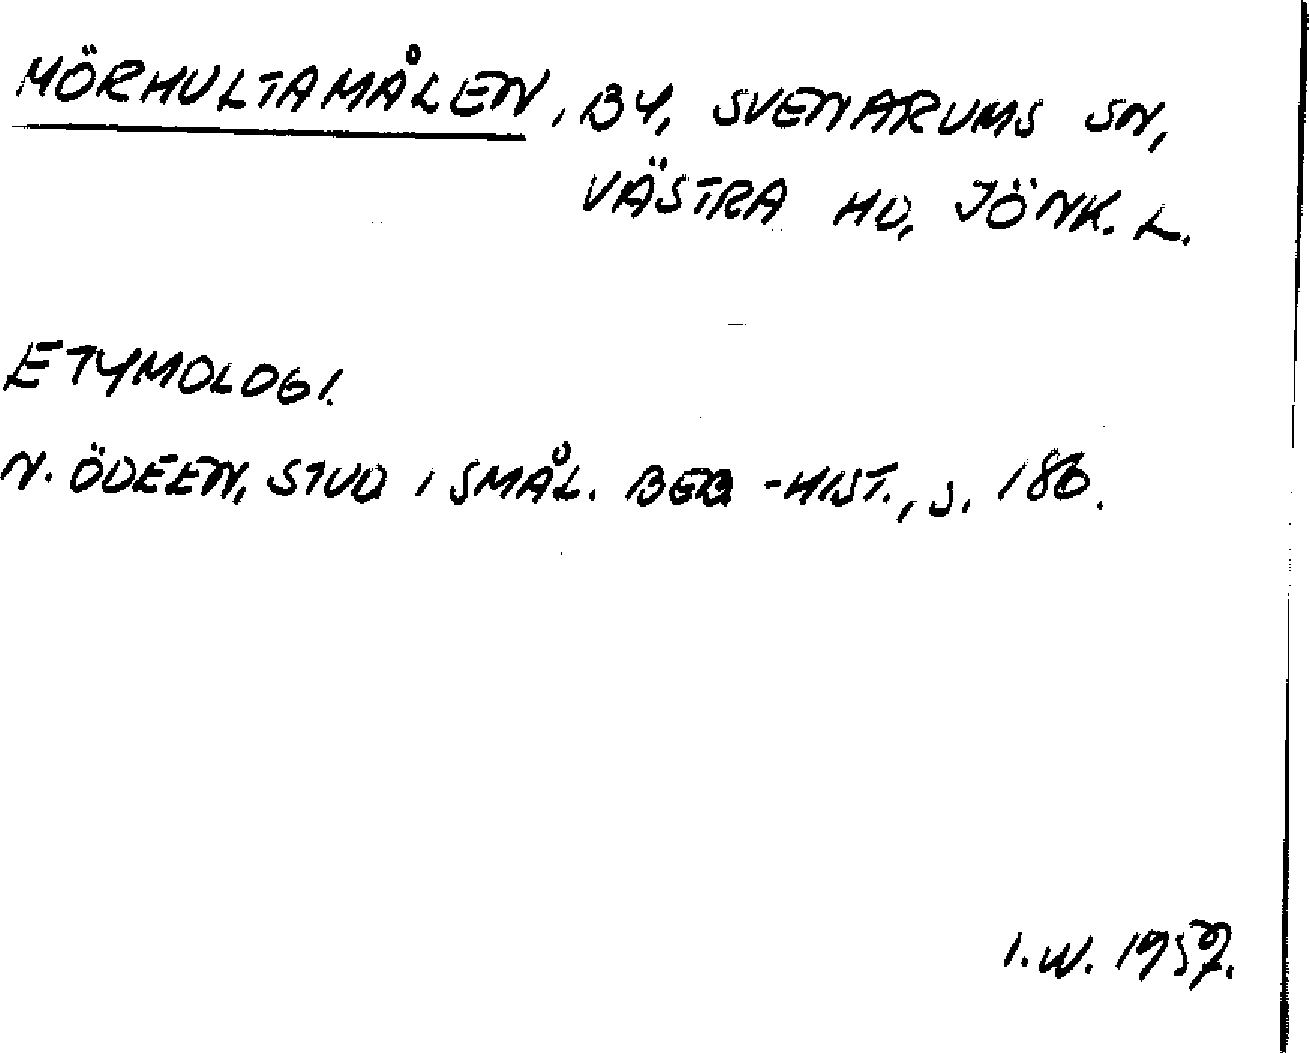 MÖRHULTAMÅLEN, BY, SVENARUMS SN,
VÄSTRA HD, JÖNK. L.
ETYMOLOGI.
N. ÖDEEN, STUD I SMÅL. BEB -HIST., S. 186.
I. W. 1957.